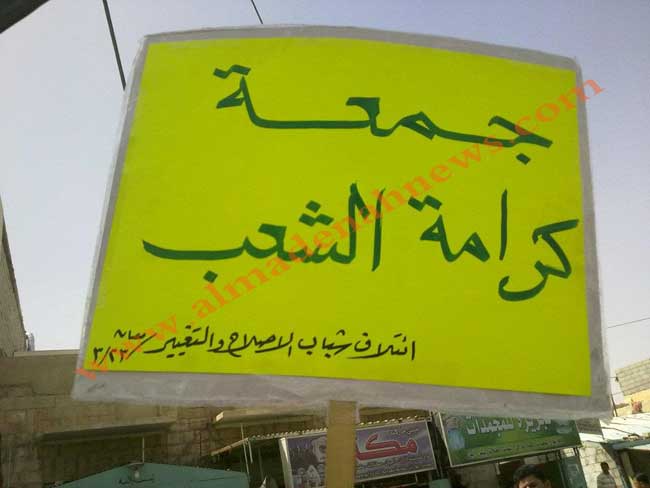 جمعة
كرامة الشعب
ائتلاف شباب الاصلاح والتغيير
٣/٢٣
www.almadenahnews.com
للمجمدات